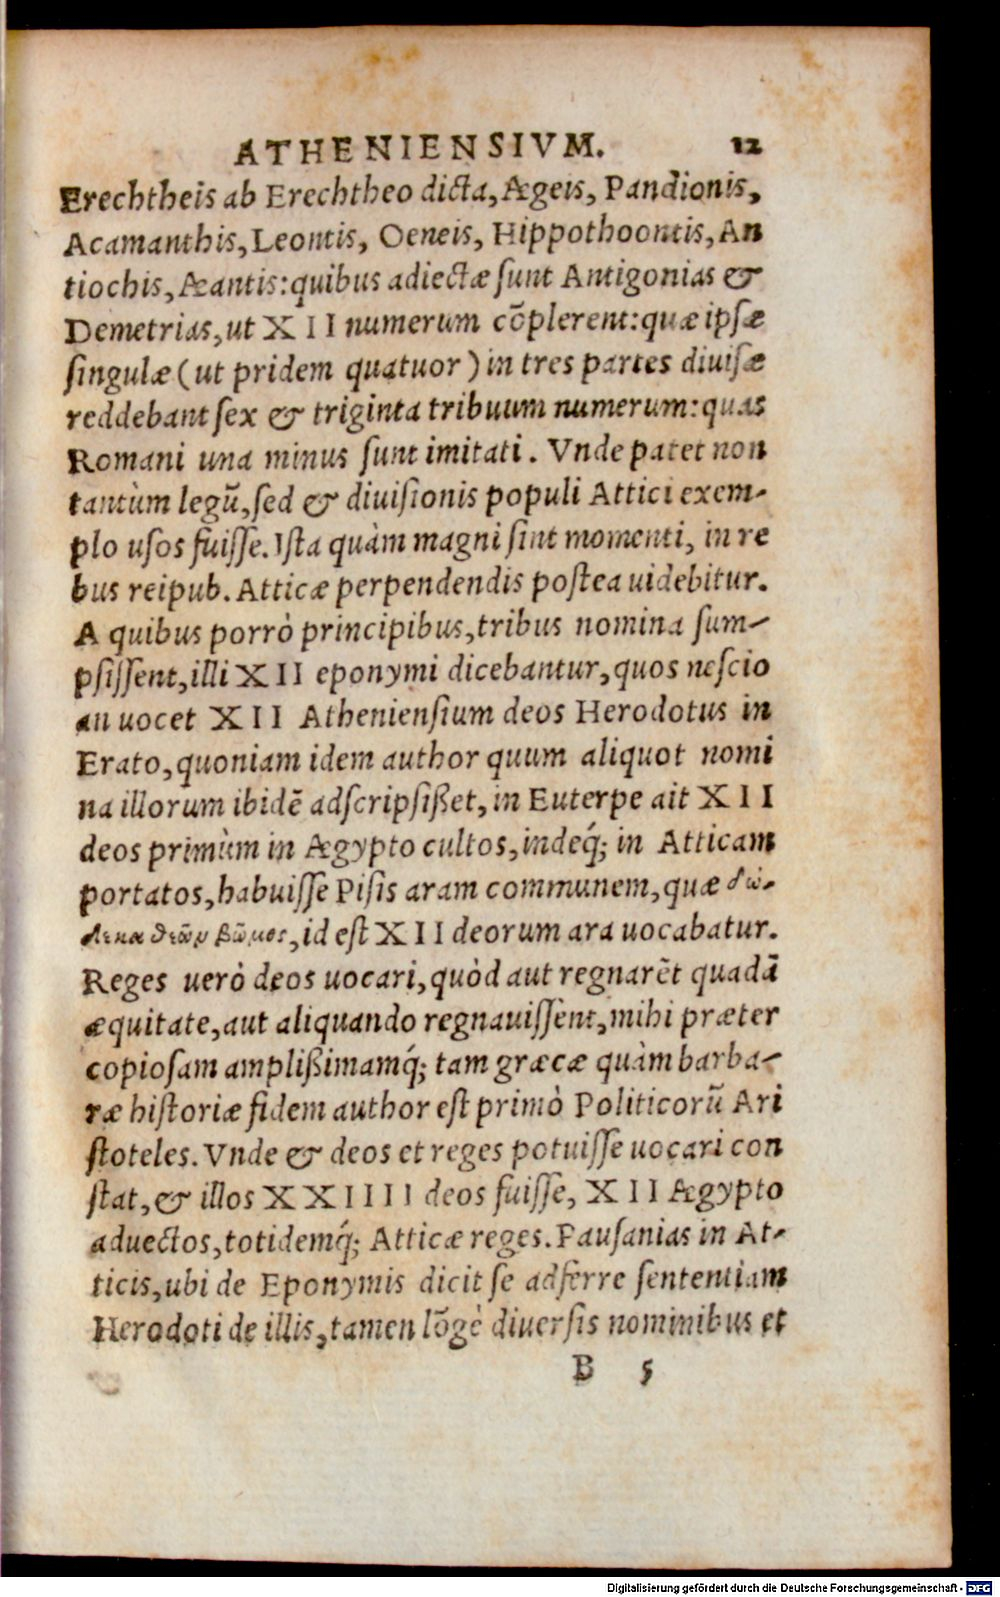 ATHENIENSIVM. 12
Erechtheis ab Erechtheo dicta, Ægeis, Pandionis,
Acamanthis, Leontis, Oeneis, Hippothoontis, An
tiochis, Æantis: quibus adiectæ sunt Antigonias &
Demetrias, ut XII numerum cōplerent: quæ ipsæ
singulæ (ut pridem quatuor) in tres partes diuisæ
reddebant sex & triginta tribuum numerum: quas
Romani una minus sunt imitati. Vnde patet non
tantùm legū, sed & diuisionis populi Attici exem-
plo usos fuisse. Ista quàm magni sint momenti, in re
bus reipub. Atticæ perpendendis postea uidebitur.
A quibus porrò principibus, tribus nomina sum-
psissent, illi XII eponymi dicebantur, quos nescio
an uocet XII Atheniensium deos Herodotus in
Erato, quoniam idem author quum aliquot nomi
na illorum ibidē adscripsißet, in Euterpe ait XII
deos primùm in Ægypto cultos, indeq́; in Atticam
portatos, habuisse Pisis aram communem, quæ δώ-
δεκα θεῶν βῶμος, id est XII deorum ara uocabatur.
Reges uerò deos uocari, quòd aut regnarēt quadā
æquitate, aut aliquando regnauissent, mihi præter
copiosam amplißimamq́; tam græcæ quàm barba-
ræ historiæ fidem author est primò Politicorū Ari
stoteles. Vnde & deos et reges potuisse uocari con
stat, & illos XXIIII deos fuisse, XII Ægypto
aduectos, totidemq́; Atticæ reges. Pausanias in At-
ticis, ubi de Eponymis dicit se adferre sententiam
Herodoti de illis, tamen lōgè diuersis nominibus et
B 5
Digitalisierung gefördert durch die Deutsche Forschungsgemeinschaft - DFG